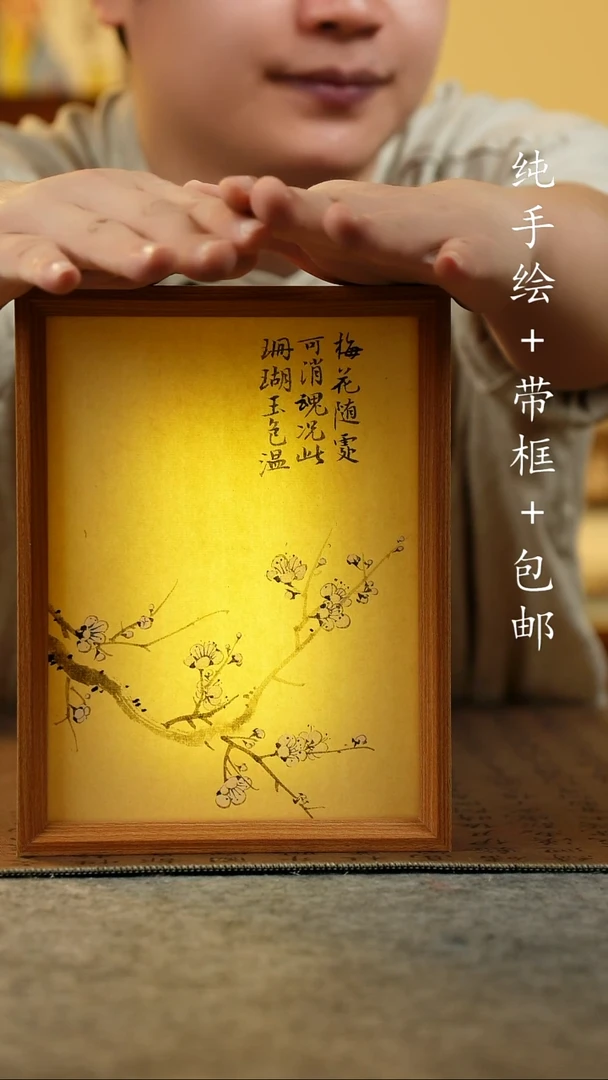 梅花随處
可消魂况此
珊瑚玉色温
纯手绘+带框+包邮